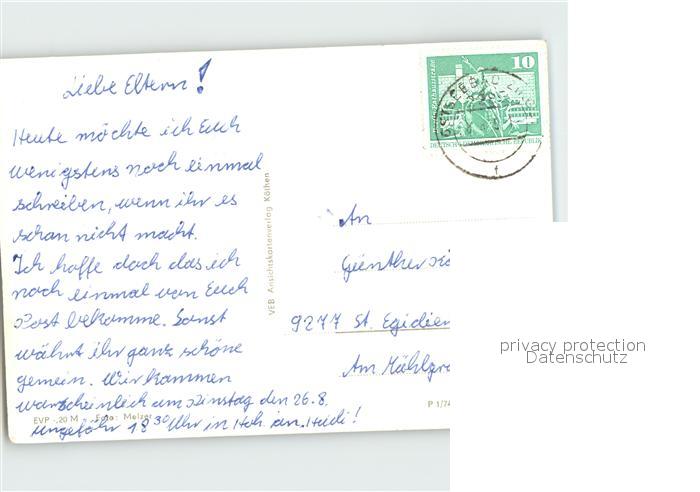 Liebe Eltern!
Heute möchte ich Euch
wenigstens noch einmal
schreiben, wenn ihr es
schon nicht macht.
Ich hoffe doch das ich
noch einmal von Euch
Post bekomme. Sonst
währt ihr ganz schöne
gemein. Wir kommen
warscheinlich am Dinstag den 26.8.
ungefähr 18 30 Uhr in Hoh. an. Heidi!
EVP -,20 M Foto: Melzer
VEB Ansichtskartenverlag Köthen
P 1/74
10
DEUTSCHE DEMOKRATISCHE REPUBLIK
An
Günther
9277 St. Egidien
Am Mühlgra
privacy protection
Datenschutz